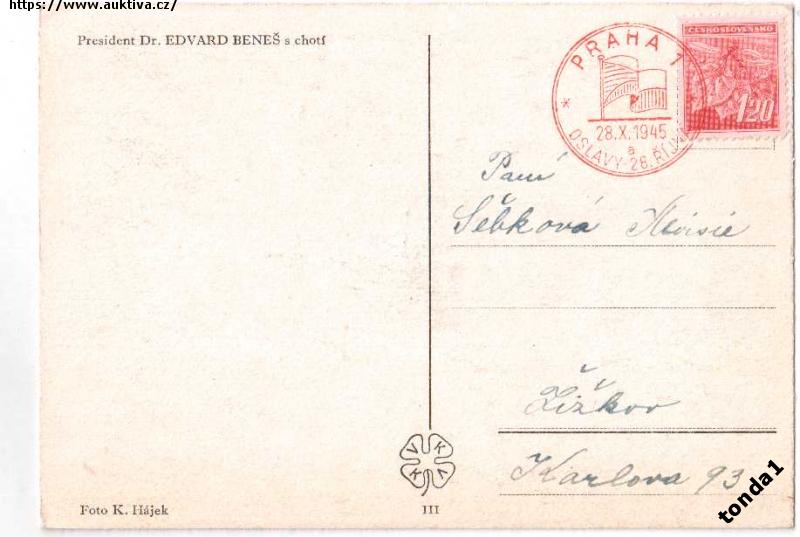 https://www.auktiva.cz/
President Dr. EDVARD BENEŠ s chotí
PRAHA 1
28.X.1945
a
OSLAVY-28.ŘÍJ
ČESKOSLOVENSKO
1.20
Paní
Šebková Aloisie
Žižkov
Karlova 93
V K V K
Foto K. Hájek
III
tonda1